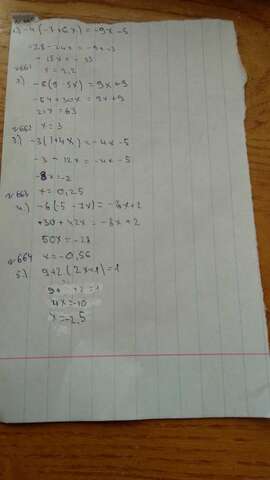 -4(-7+6x)=-9x-5
-28-24x=-9x-5
-15x=-33
x=2,2
№661
2) -6(9-5x)=9x+9
-54+30x=9x+9
21x=63
x=3
№662
3) -3(1+4x)=-4x-5
-3-12x=-4x-5
-8x=-2
x=0,25
№663
4) -6(-5-7x)=-8x+2
+30+42x=-8x+2
50x=-28
x=-0,56
№664
5) 9+2(2x+1)=1
9+ +2=1
4x=-10
x=-2,5